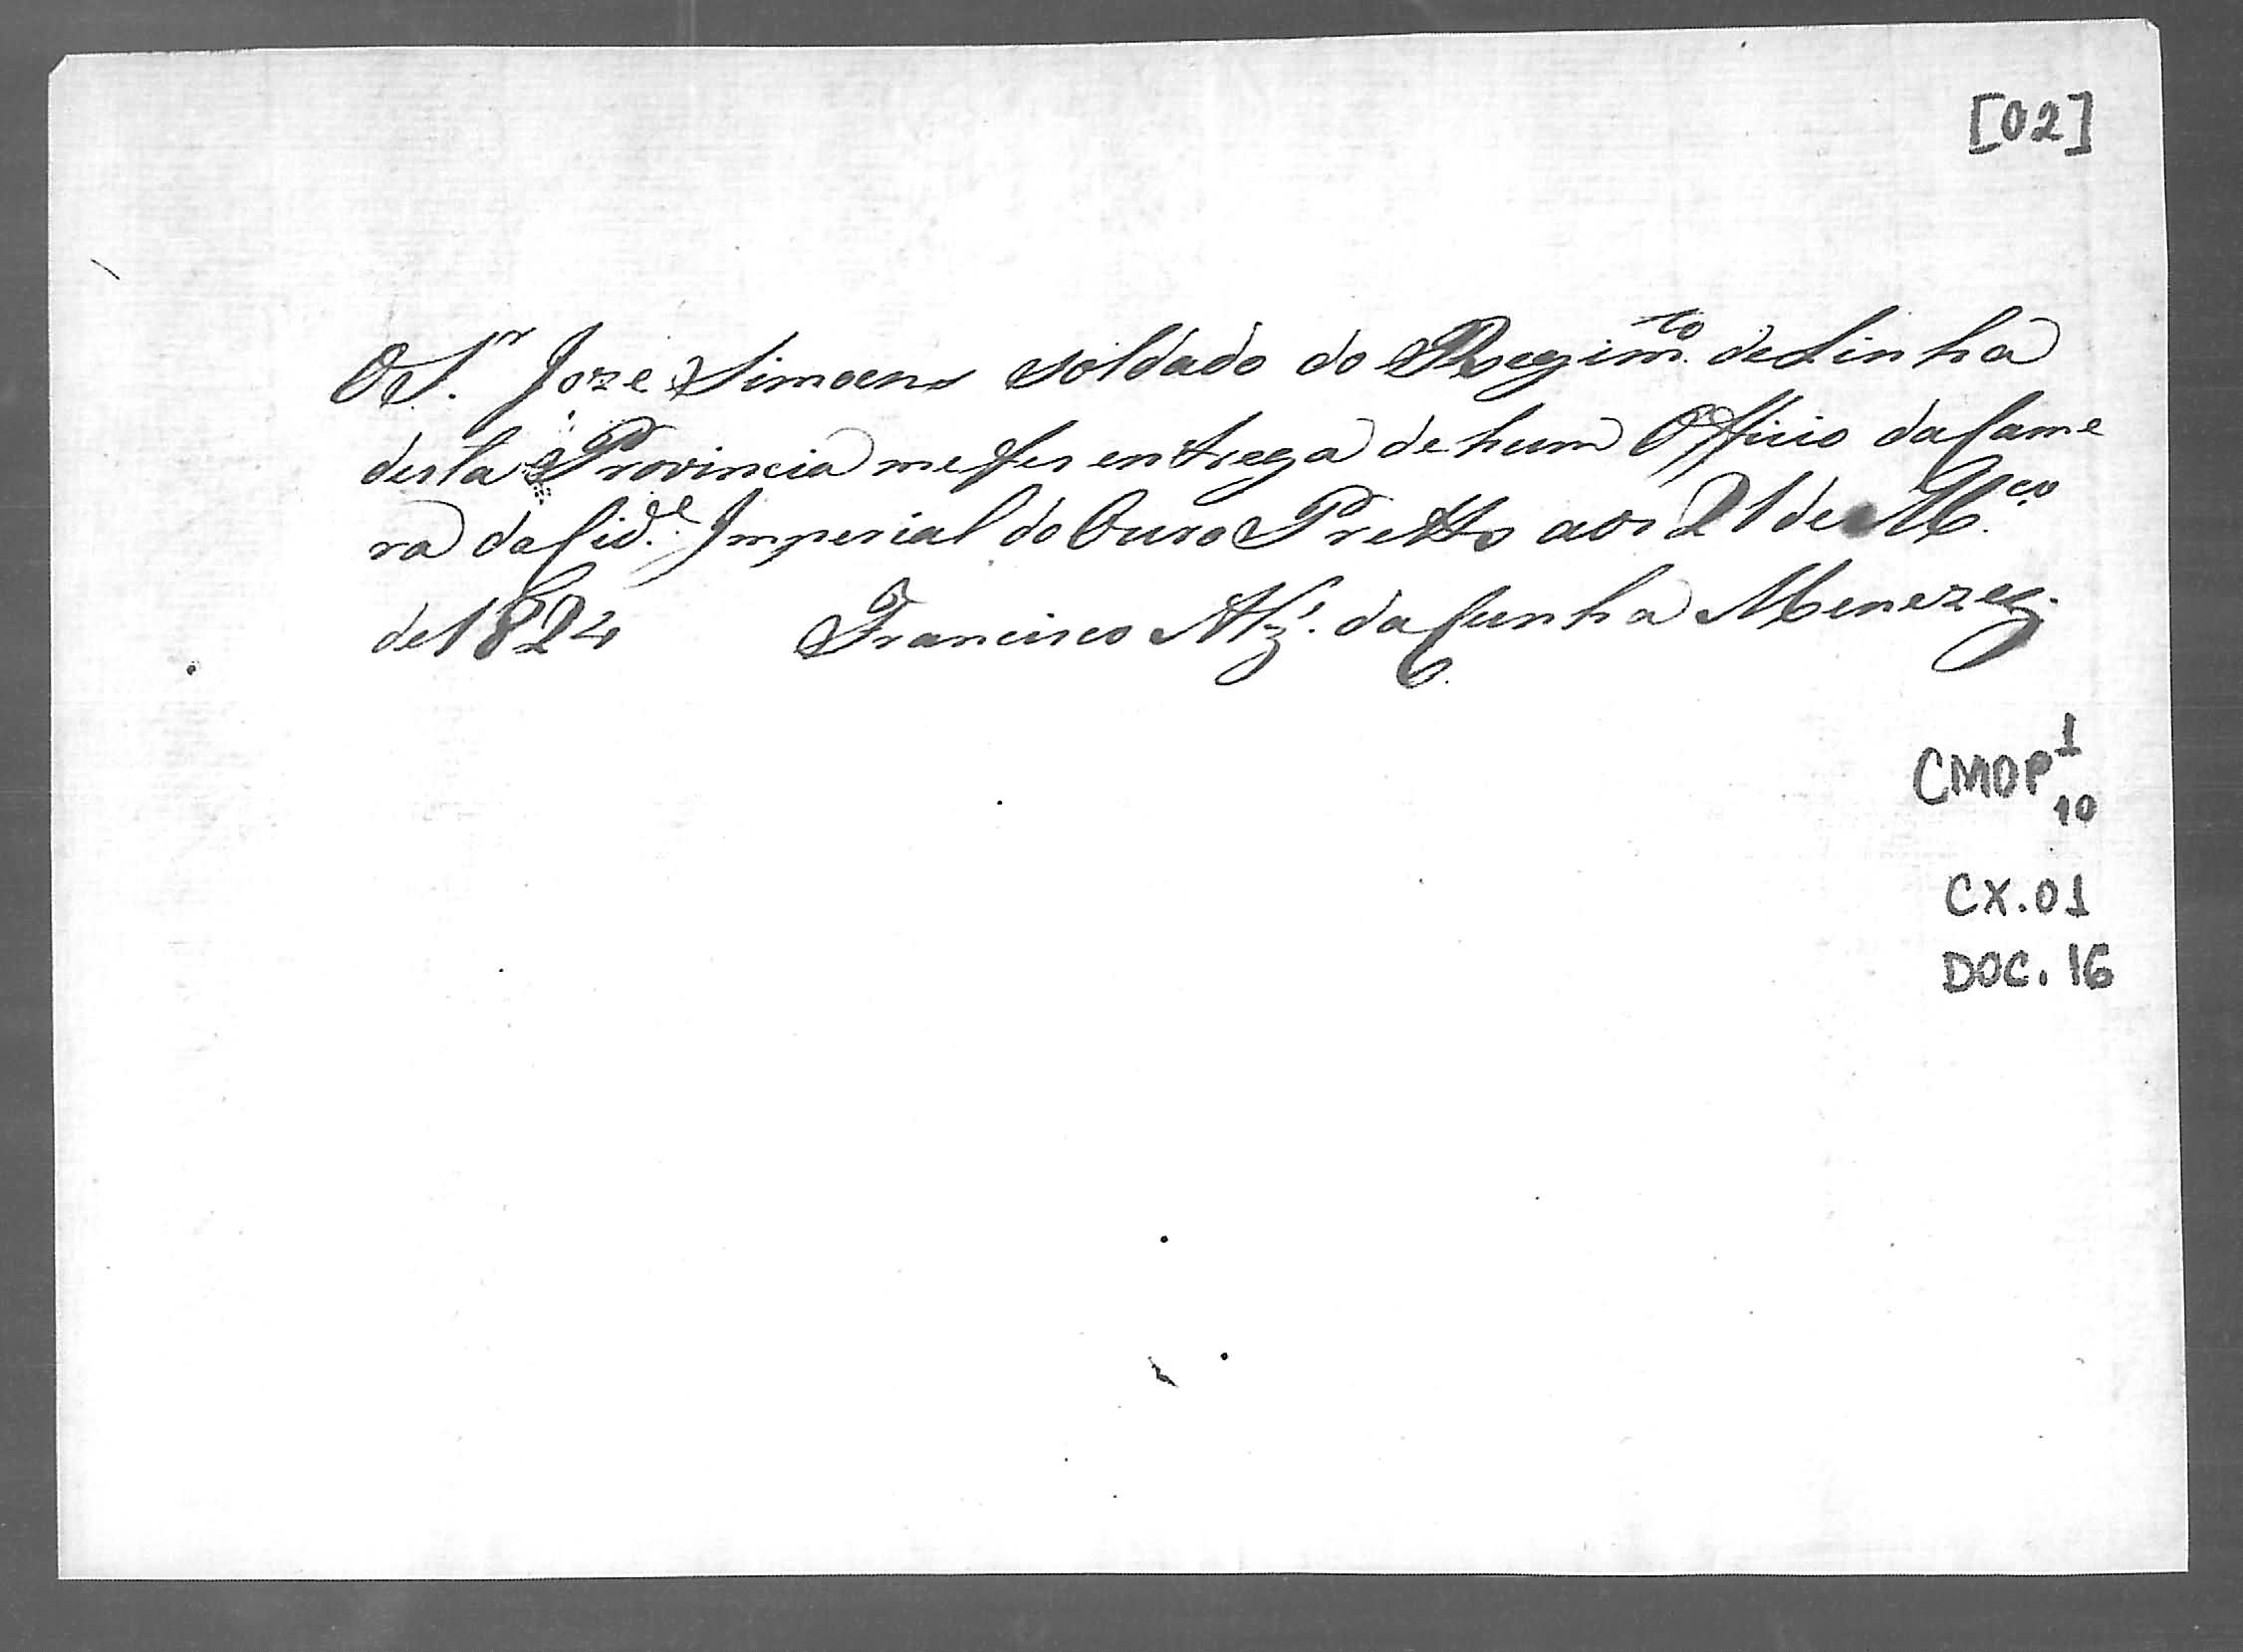 [02]
O S.r Joze Simoens soldado do Regim.to de Linha
desta Provincia me fes entrega de hum Officio da Came
ra da Cid.e Imperial do Ouro Pretto aos 21 de M.ço
de 1824 Francisco Alz'. da Cunha Menezes.
CMOP 1
10
CX.01
DOC. 16